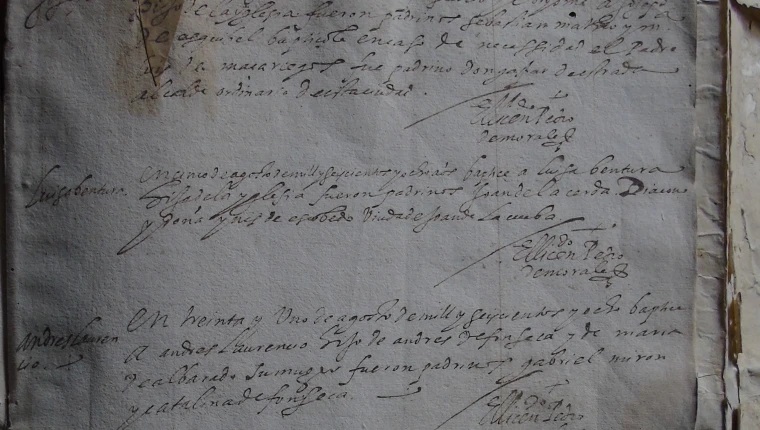 hijo de la yglesia fueron padrinos sebastian matheo y m
de esquibel baptiçole en caso de neçessidad el Padre
de maçariegos fue padrino don gaspar de estrada
alcalde ordinario de esta ciudad.
El licen.do Pedro
de morales
Luisa bentura. En cinco de agosto de mill y seiscientos y ocho años baptice a luisa bentura
hija de la yglesia fueron padrinos Joan de la cerda Diacono
y dona ynes de escobedo Viuda de Joan de la cueba
El licen.do Pedro
de morales
Andres Lauren
cio. En treinta y Uno de agosto de mill y seiscientos y ocho baptice
A andres Laurencio hijo de andres de fonseca y de maria
de albarado su muger fueron padrinos gabriel miron
y catalina de fonseca.
El licen.do Pedro